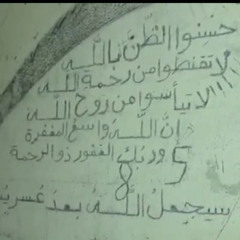 حسنوا الظن بالله
لا تقنطوا من رحمة الله
لا تيأسوا من روح الله
إن الله واسع المغفرة
وربك الغفور ذو الرحمة
سيجعل الله بعد عسر